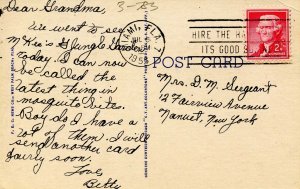 Dear Grandma, 3-783
We went to see
McKee's Jungle Gardens
today. I can now
be called the
latest thing in
mosquito bites.
Boy do I have a
lot of them. I will
send another card
fairly soon.
Love
Betty
MIAMI, FLA.
195
HIRE THE HA
ITS GOOD B
2¢
POST CARD
Mrs. D. M. Sergeant
12 Fairview Avenue
Nanuet, New York